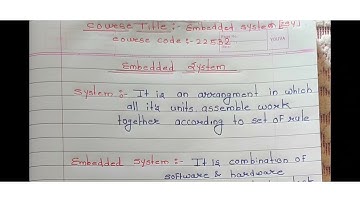 Cowese Title :- Embedded System [ESY]
cowese code :- 22532
Embedded System
System :- It is an arrangment in which
all its units assemble work
together according to set of rule
Embedded System :- It is combination of
software & hardware